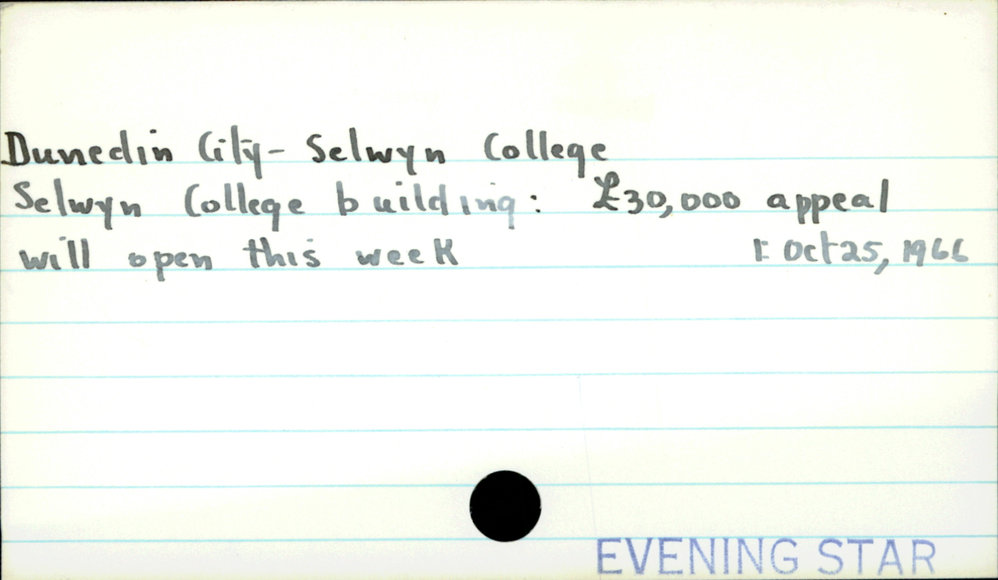 Dunedin City- Selwyn College
Selwyn College building: £30,000 appeal
will open this week 1: Oct 25, 1966
EVENING STAR